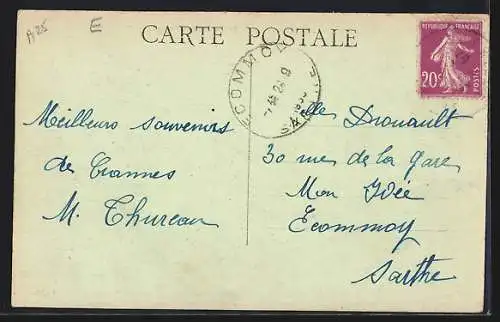 A25
E
CARTE POSTALE
RÉPUBLIQUE FRANÇAISE
20c
POSTES
ECOMMOY
Meilleurs souvenirs
de Crannes
M. Thureau
Mlle Drouault
30 rue de la gare
Mon Idée
Ecommoy
Sarthe